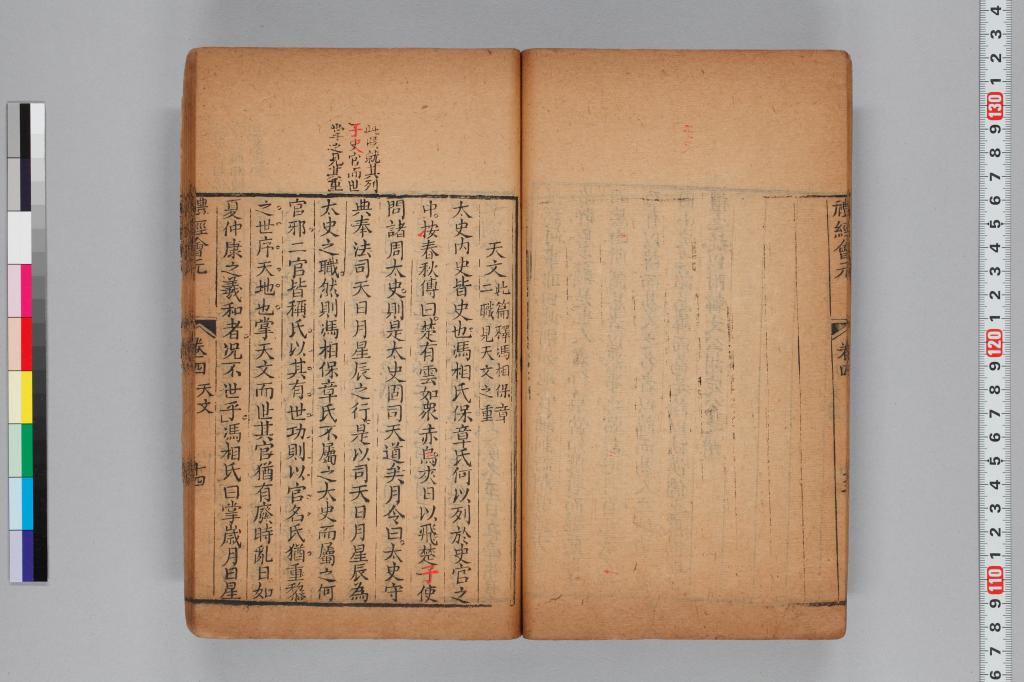 禮經會元
卷四
天文 此篇釋馮相保章
二職見天文之重
太史內史皆史也馮相氏保章氏何以列於史官之
中按春秋傳曰楚有雲如衆赤烏夾日以飛楚子使
問諸周太史則是太史固司天道矣月令曰太史守
典奉法司天日月星辰之行是以司天日月星辰為
太史之職然則馮相保章氏不屬之太史而屬之何
官邪二官皆稱氏以其有世功則以官名氏猶重黎
之世序天地也掌天文而世其官猶有廢時亂日如
夏仲康之羲和者况不世乎馮相氏曰掌歲月日星
此段就其列
于史官而世
掌之見其重
禮經會元
卷四 天文
十四